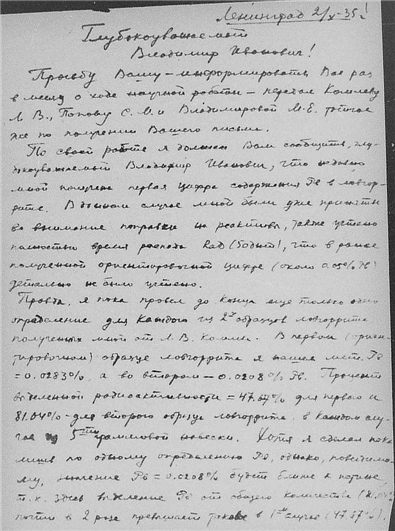 Ленинград 2/X-35 г.
Глубокоуважаемый
Владимир Иванович!
Просьбу Вашу – информировать Вас раз
в месяц о ходе научной работы – передал Комлеву
Л. В., Попову С. М. и Владимировой М. Е. тотчас
же по получении Вашего письма.
По своей работе я должен Вам сообщить, глу-
бокоуважаемый Владимир Иванович, что недавно
мной получена первая цифра содержания Pb в ловчор-
рите. В данном случае мной были уже приняты
во внимание поправки на реактивы, также учтено
полностью время распада RaD, что в ранее
полученной ориентировочной цифре (около 0.05% Pb)
детально не было учтено.
Правда, я пока провел до конца еще только одно
определение для каждого из 2х образцов ловчоррита
полученных мной от Л. В. Комлева. В первом (ориен-
тировочном) образце ловчоррита я нашел Pb
= 0.0283%, а во втором – 0.0208% Pb. Процент
выделенной радиоактивности = 47.57% для первого и
81.04% – для второго образца ловчоррита, в каждом слу-
чае 5ти граммовой навески. Хотя я сделал пока
лишь по одному определению Pb, однако, повидимо-
му, значение Pb = 0.0208% будет ближе к истине,
т. к. здесь выделение Pb от общего количества
почти в 2 раза превышает таковое в 1ом случае (47.57%).